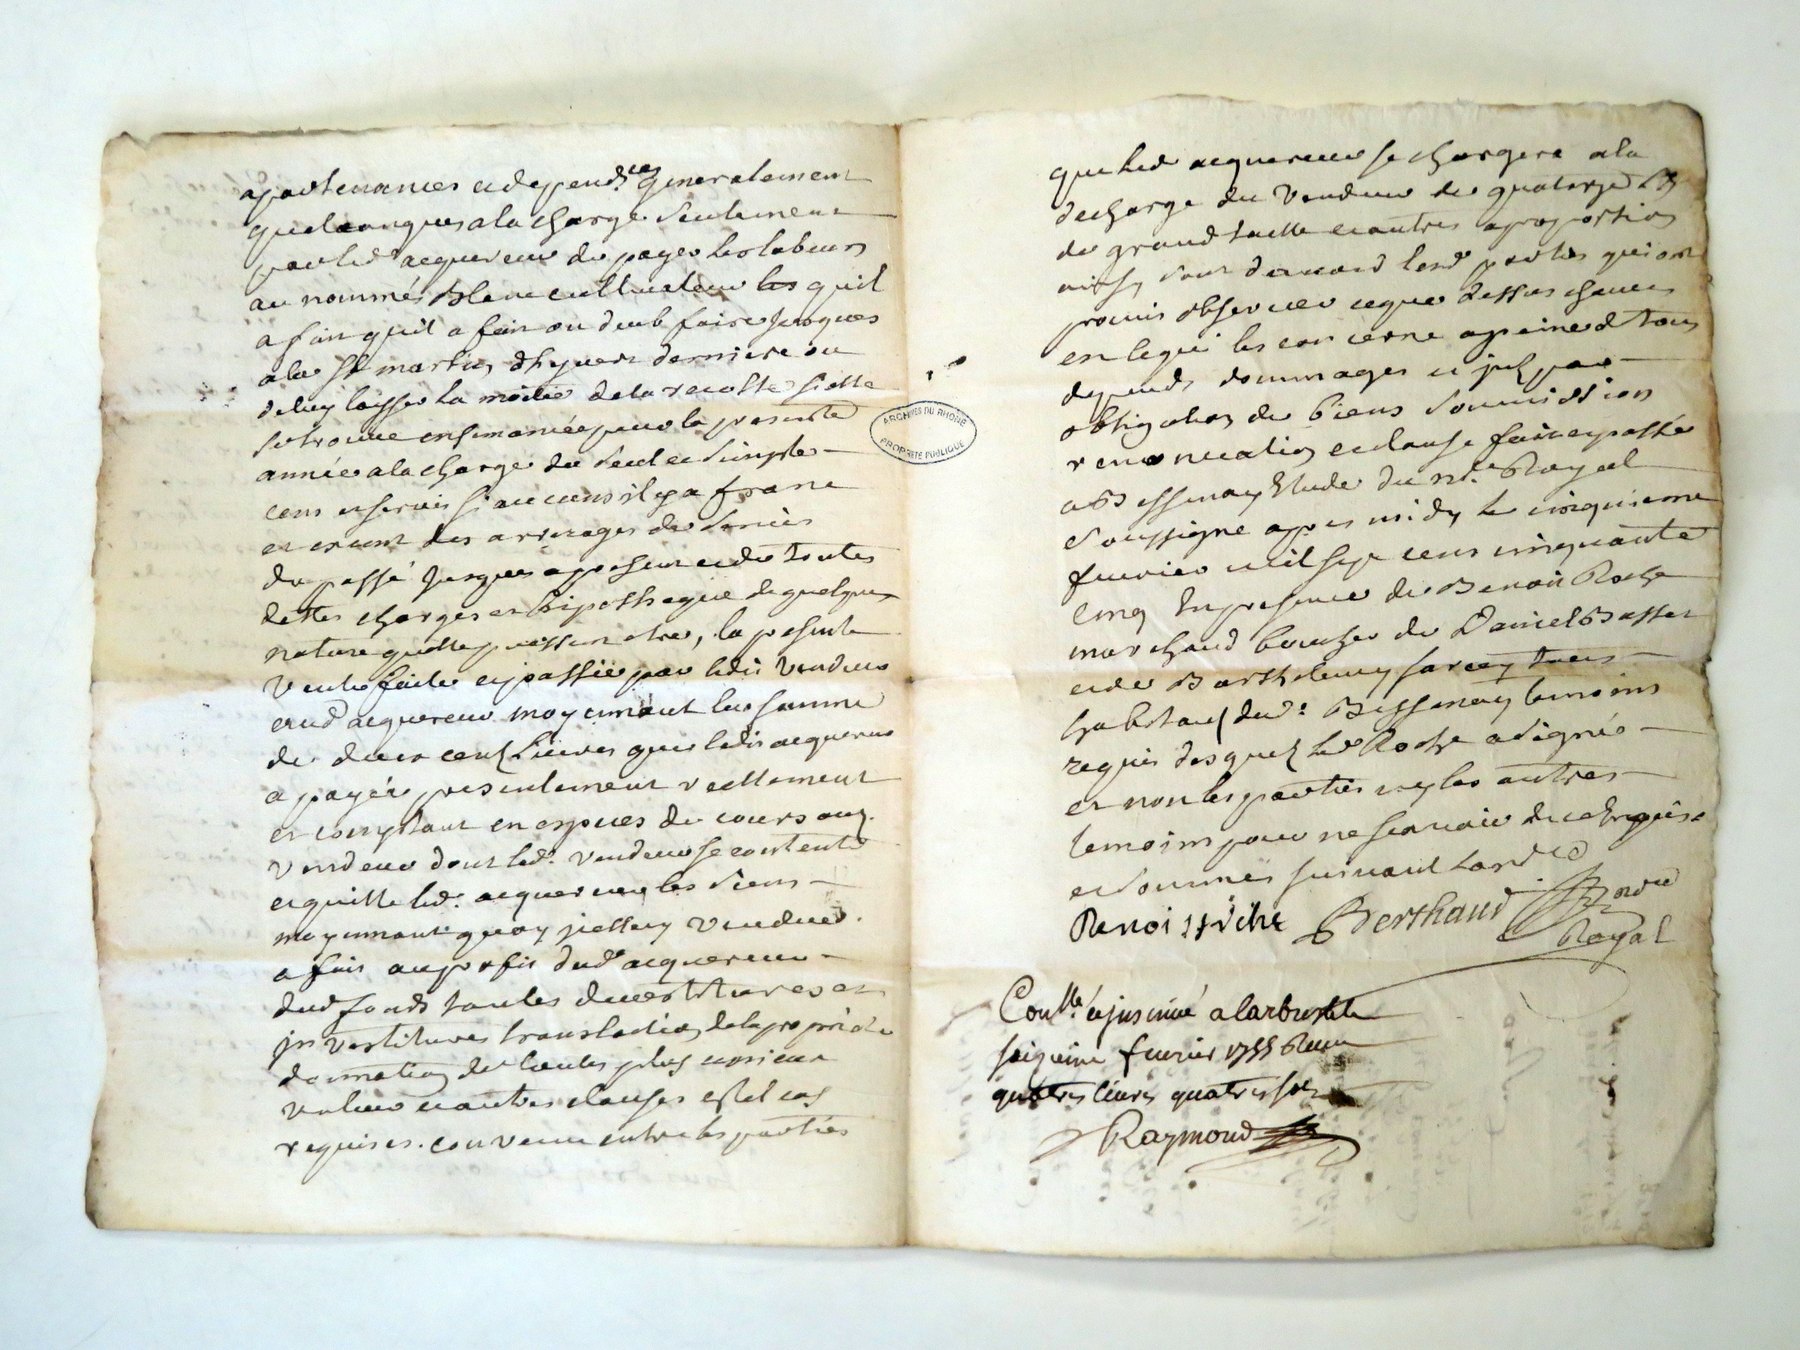 apartenances et dependces generalement
quelconques a la charge seulement
par led acquereur de payer les labeurs
au nommé Blanc cultivateur les quil
a fait quil a fait ou deub faire jusques
a la St martin dhyvert derniere ou
de luy laisser la moitié de la recolte si elle
se trouve ensemancée pour la presente
année a la charge du seul et simple
cens et servis si aucuns il y a franc
et exent des arrerages de servis
du passé jusques a present et de toutes
dettes charges et hipotheque de quelques
nature quelle puissent etre, la presente
vente faitte et passée par ledit vendeur
aud acquereur moyennant la somme
de deux cent livres que ledit acquereur
a payée presentement reellement
et comptant en especes de cours aud.
vendeur dont led. vendeur se contente
et quitte led. acquereur les siens
moyennant quoy icelluy vendeur
a fait au profit dud acquereur
dud fonds toutes devestitures et
investitures translation de la proprieté
donnation de toutes plus
valeur et autres clauses et cas
requises. convenu entre les parties
que led acquereur se chargera a la
decharge du vendeur de quatorze
de grand taille et autres a proportion
ainsy sont demeuré lesd parties qui ont
promis observer ce que dessus chacun
en ce qui les concerne a peine de tous
depends dommages et
obligation de biens soumission
renonciation et clause fait et passé
a Bessenay Etude du nre Royal
soussigné apres midy le cinquieme
fevrier mil sept cent cinquante
cinq En presence de Benoit Roche
marchand boucher de Daniel Basset
et de Barthelemy farcy tous
habitans dud. Bessenay temoins
requis desquels led Roche a signé
et non les parties ny les autres
temoins pour ne scavoir de ce Enquis
et sommés suivant lord
Benoit roche Berthaud
Royal
Conlle et insinué a larbresle
fevrier 1755 Recu
quatres livres quatres sols
Raymond